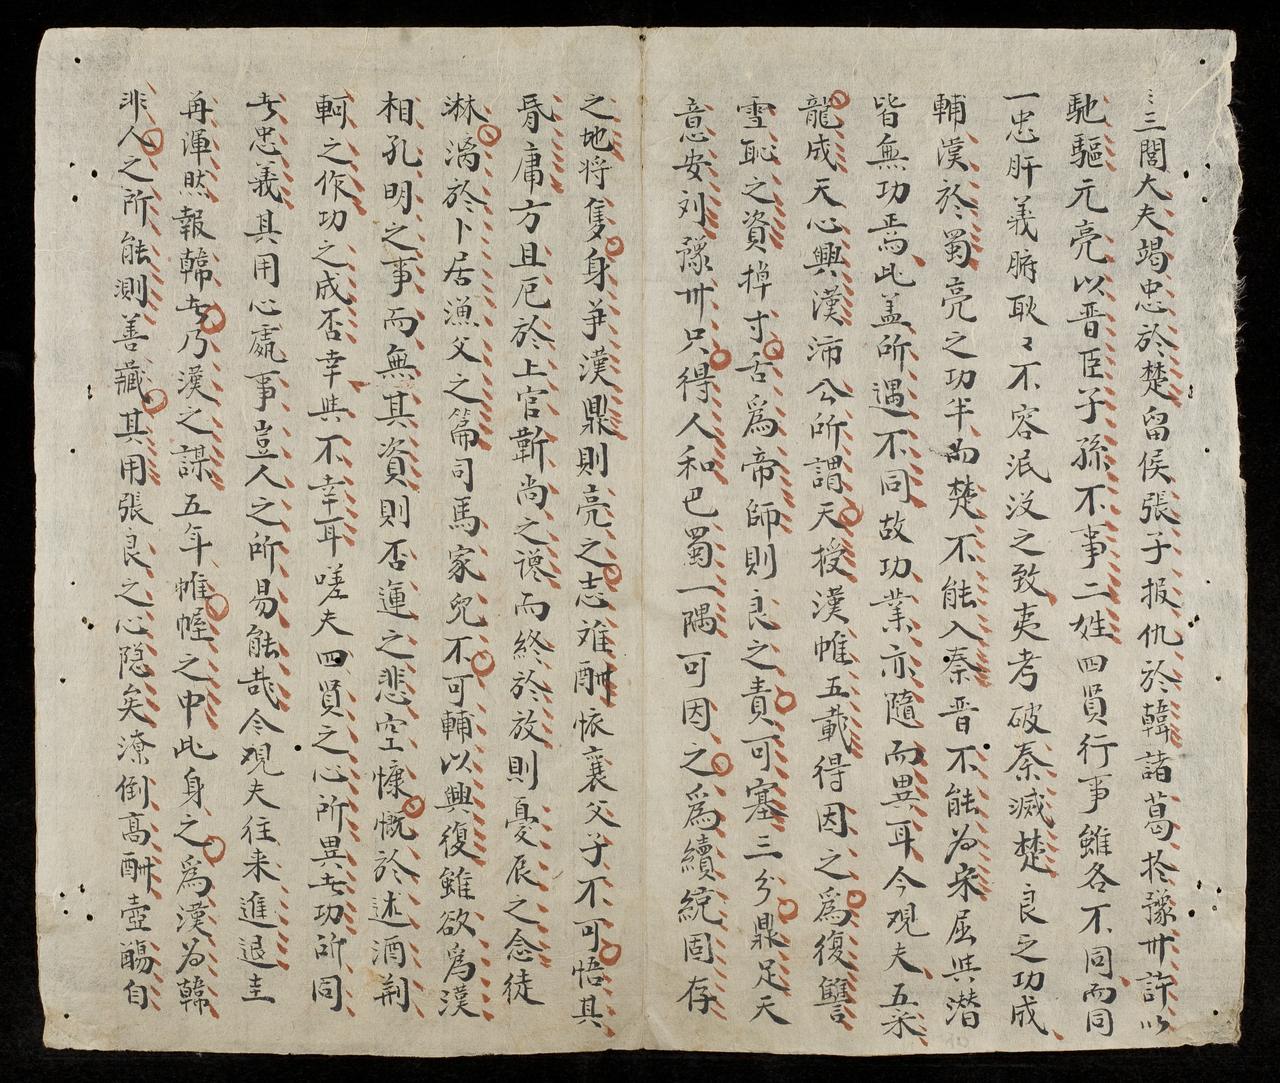 三閭大夫竭忠於楚留侯張子报仇於韓諸葛於豫卅許以
馳驅元亮以晋臣子孫不事二姓四員行事雖各不同而同
一忠肝義腑耿〻不容泯没之致夷考破秦滅楚良之功成
輔漢於蜀亮之功半而楚不能入秦晋不能为宋屈共潜
皆無功焉此盖所遇不同故功業亦隨而異耳今观夫五采
龍成天心興漢沛公所謂天授漢帷五載得因之爲復讐
雪恥之資掉寸舌爲帝師則良之責可塞三分鼎足天
意安刘豫卅只得人和巴蜀一隅可因之爲續統固存
之地将隻身爭漢鼎則亮之志难酬恢襄父子不可悟其
昏庸方且厄於上官靳尚之讒而終於放則憂辰之念徒
淋漓於卜居漁父之篇司馬家兒不可輔以興復雖欲爲漢
相孔明之事而無其資則否運之悲空慷慨於述酒荆
軻之作功之成否幸與不幸耳嗟夫四員之心所異者功所同
者忠義其用心處事豈人之所易能哉今观夫往来進退圭
再渾然報韓者乃漢之謀五年帷幄之中此身之爲漢为韓
非人之所能測善藏其用張良之心隐矣潦倒高酣壺觴自